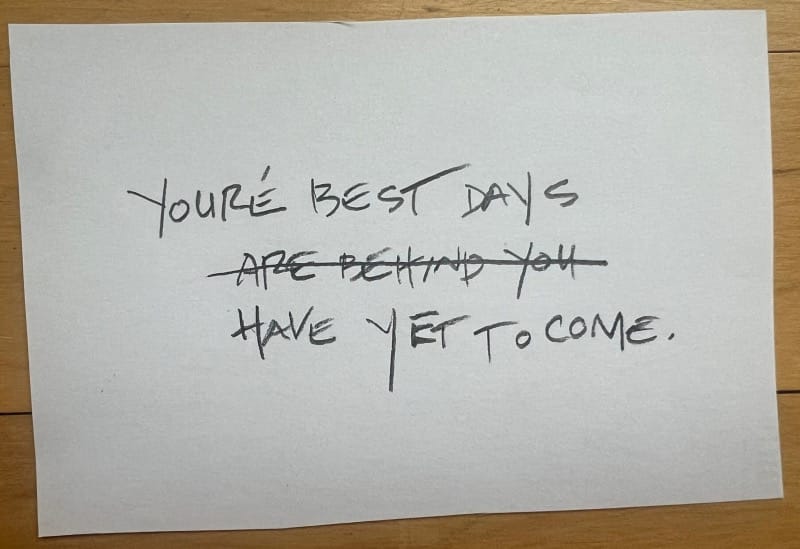 YOURÉ BEST DAYS
ARE BEHIND YOU
HAVE YET TO COME.